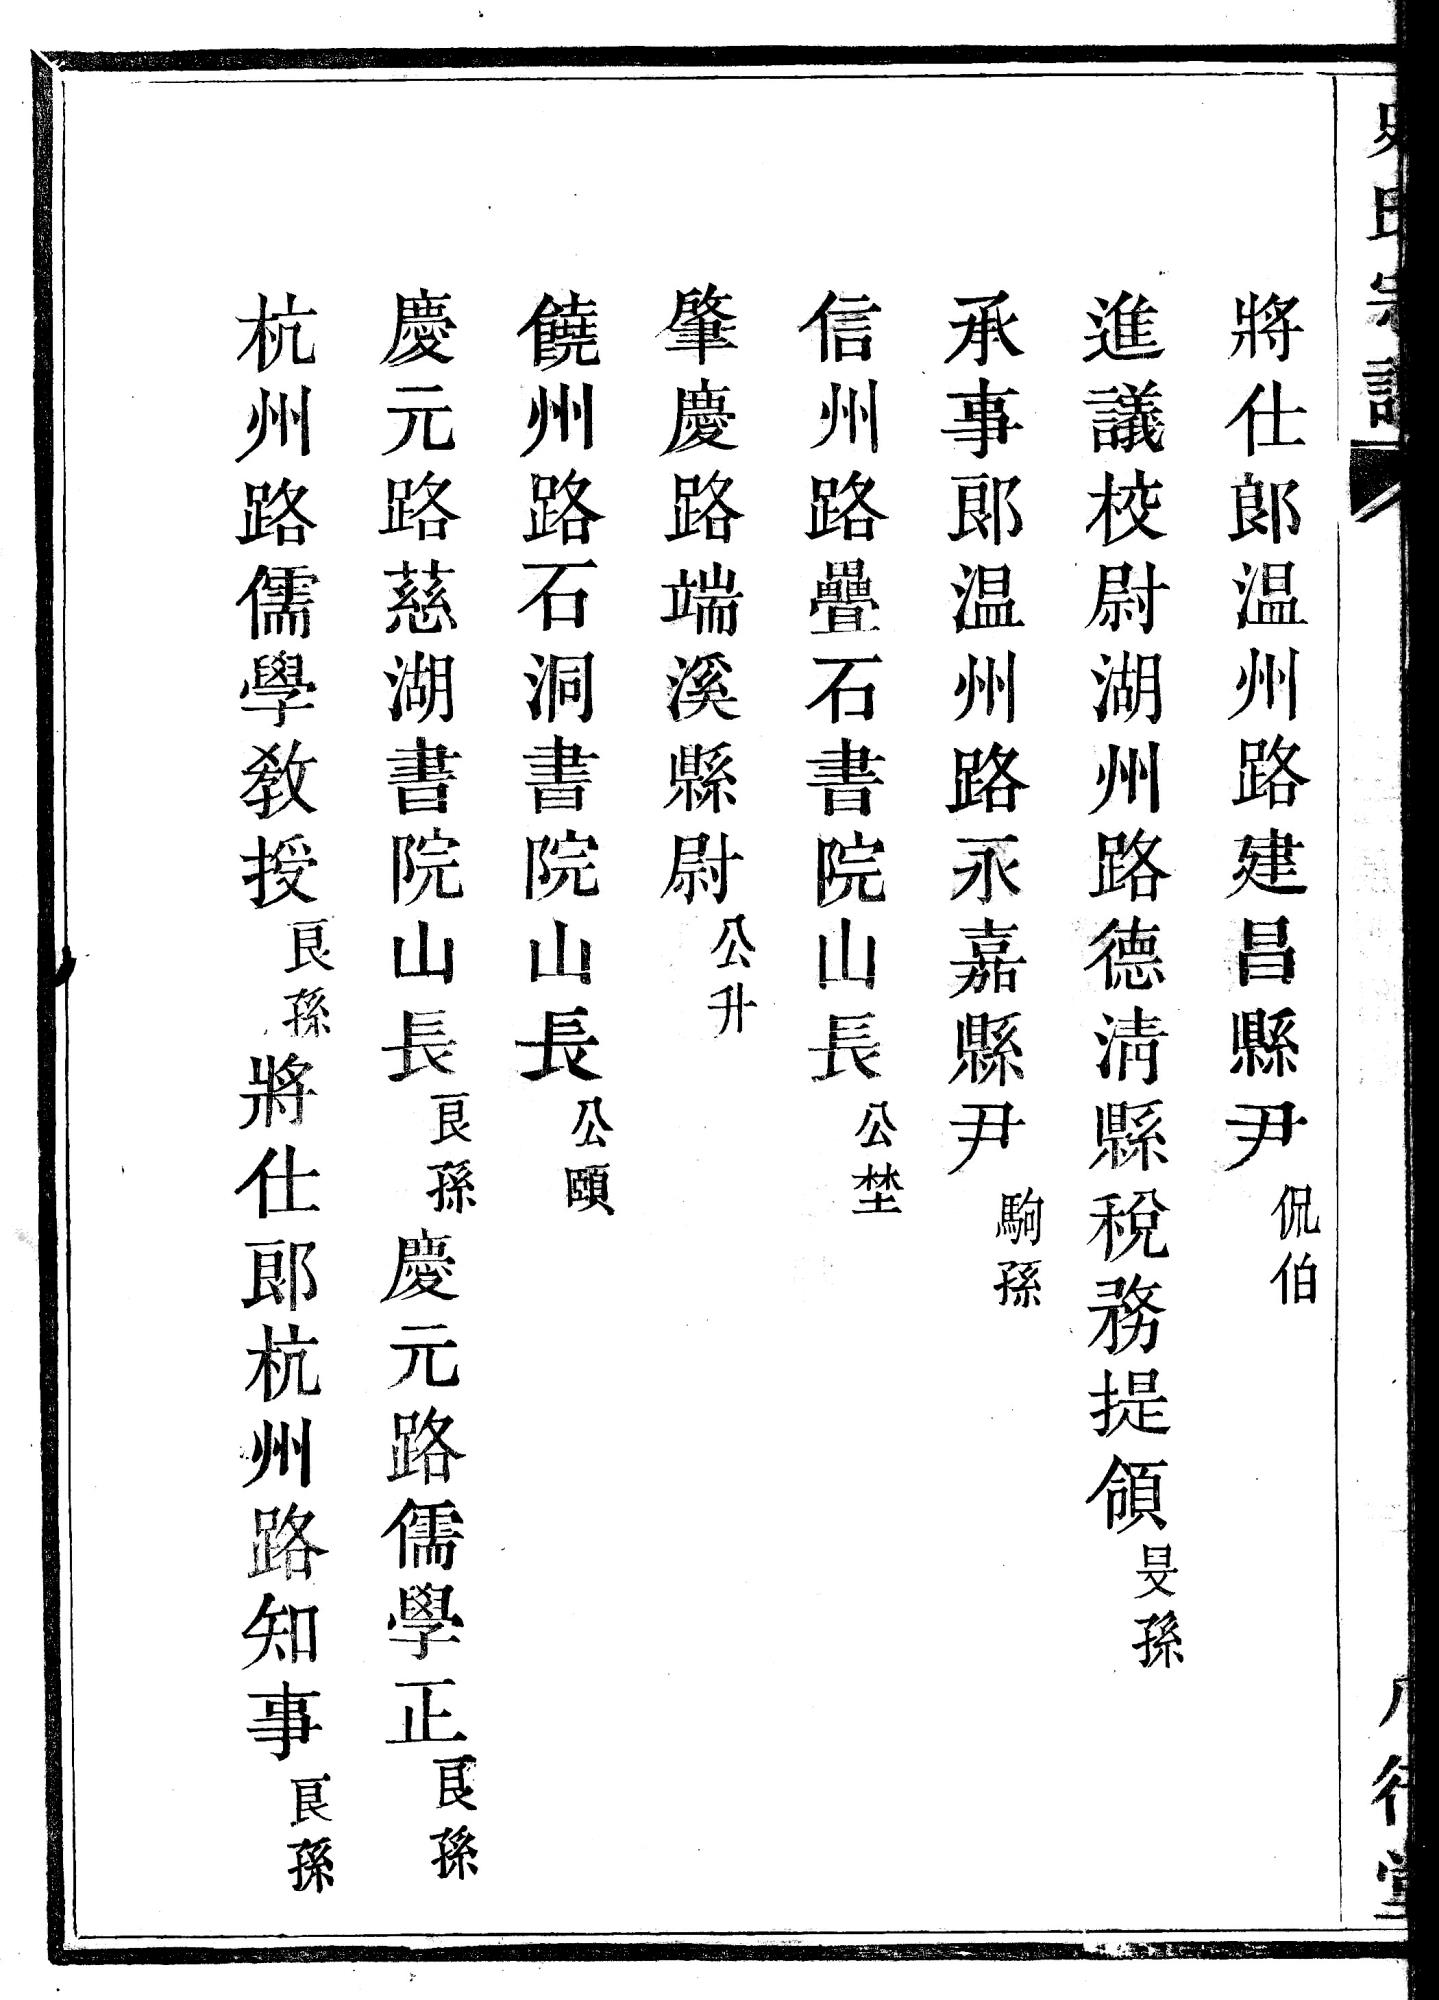 史氏宗譜
八行堂
將仕郎温州路建昌縣尹侃伯
進議校尉湖州路德淸縣稅務提領旻孫
承事郎温州路永嘉縣尹駒孫
信州路疊石書院山長公埜
肇慶路端溪縣尉公升
饒州路石洞書院山長公頤
慶元路慈湖書院山長艮孫慶元路儒學正艮孫
杭州路儒學敎授艮孫將仕郎杭州路知事艮孫